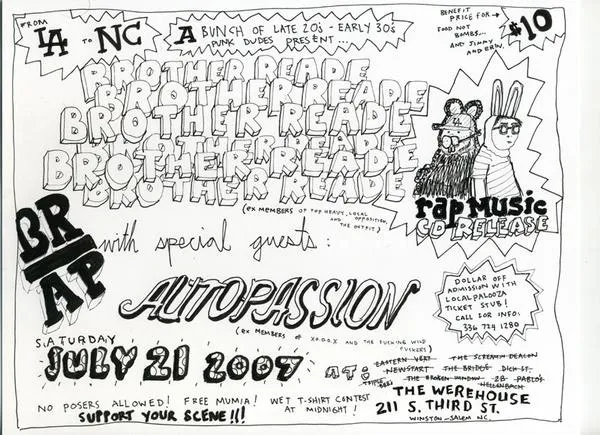 FROM
LA TO NC
A BUNCH OF LATE 20's - EARLY 30's
PUNK DUDES PRESENT...
BENEFIT
PRICE FOR →
FOOD NOT
BOMBS...
AND JIMMY
AND ERIN.
$10
BROTHER READE
BROTHER READE
BROTHER READE
BROTHER READE
BROTHER READE
BROTHER READE
(EX MEMBERS OF TOP HEAVY, LOCAL
OPPOSITION,
AND THE OUTFIT)
rap Music
CD RELEASE
BR
AP
with special guests:
AUTOPASSION
(EX MEMBERS OF XO.OO.X AND THE FUCKING WILD
FUCKERS)
DOLLAR OFF
ADMISSION WITH
LOCALPALOOZA
TICKET STUB!
CALL FOR INFO:
336 724 1280
SATURDAY
JULY 21 2007 AT:
EASTERN VERT THE SCREAMIN DEACON
NEWSTART THE BRIDGE DICK ST.
THE BROKEN WINDOW 2B PABLO'S
HELLENBACH
THE WEREHOUSE
211 S. THIRD ST.
WINSTON-SALEM NC.
NO POSERS ALLOWED! FREE MUMIA! WET T-SHIRT CONTEST
AT MIDNIGHT!
SUPPORT YOUR SCENE!!!